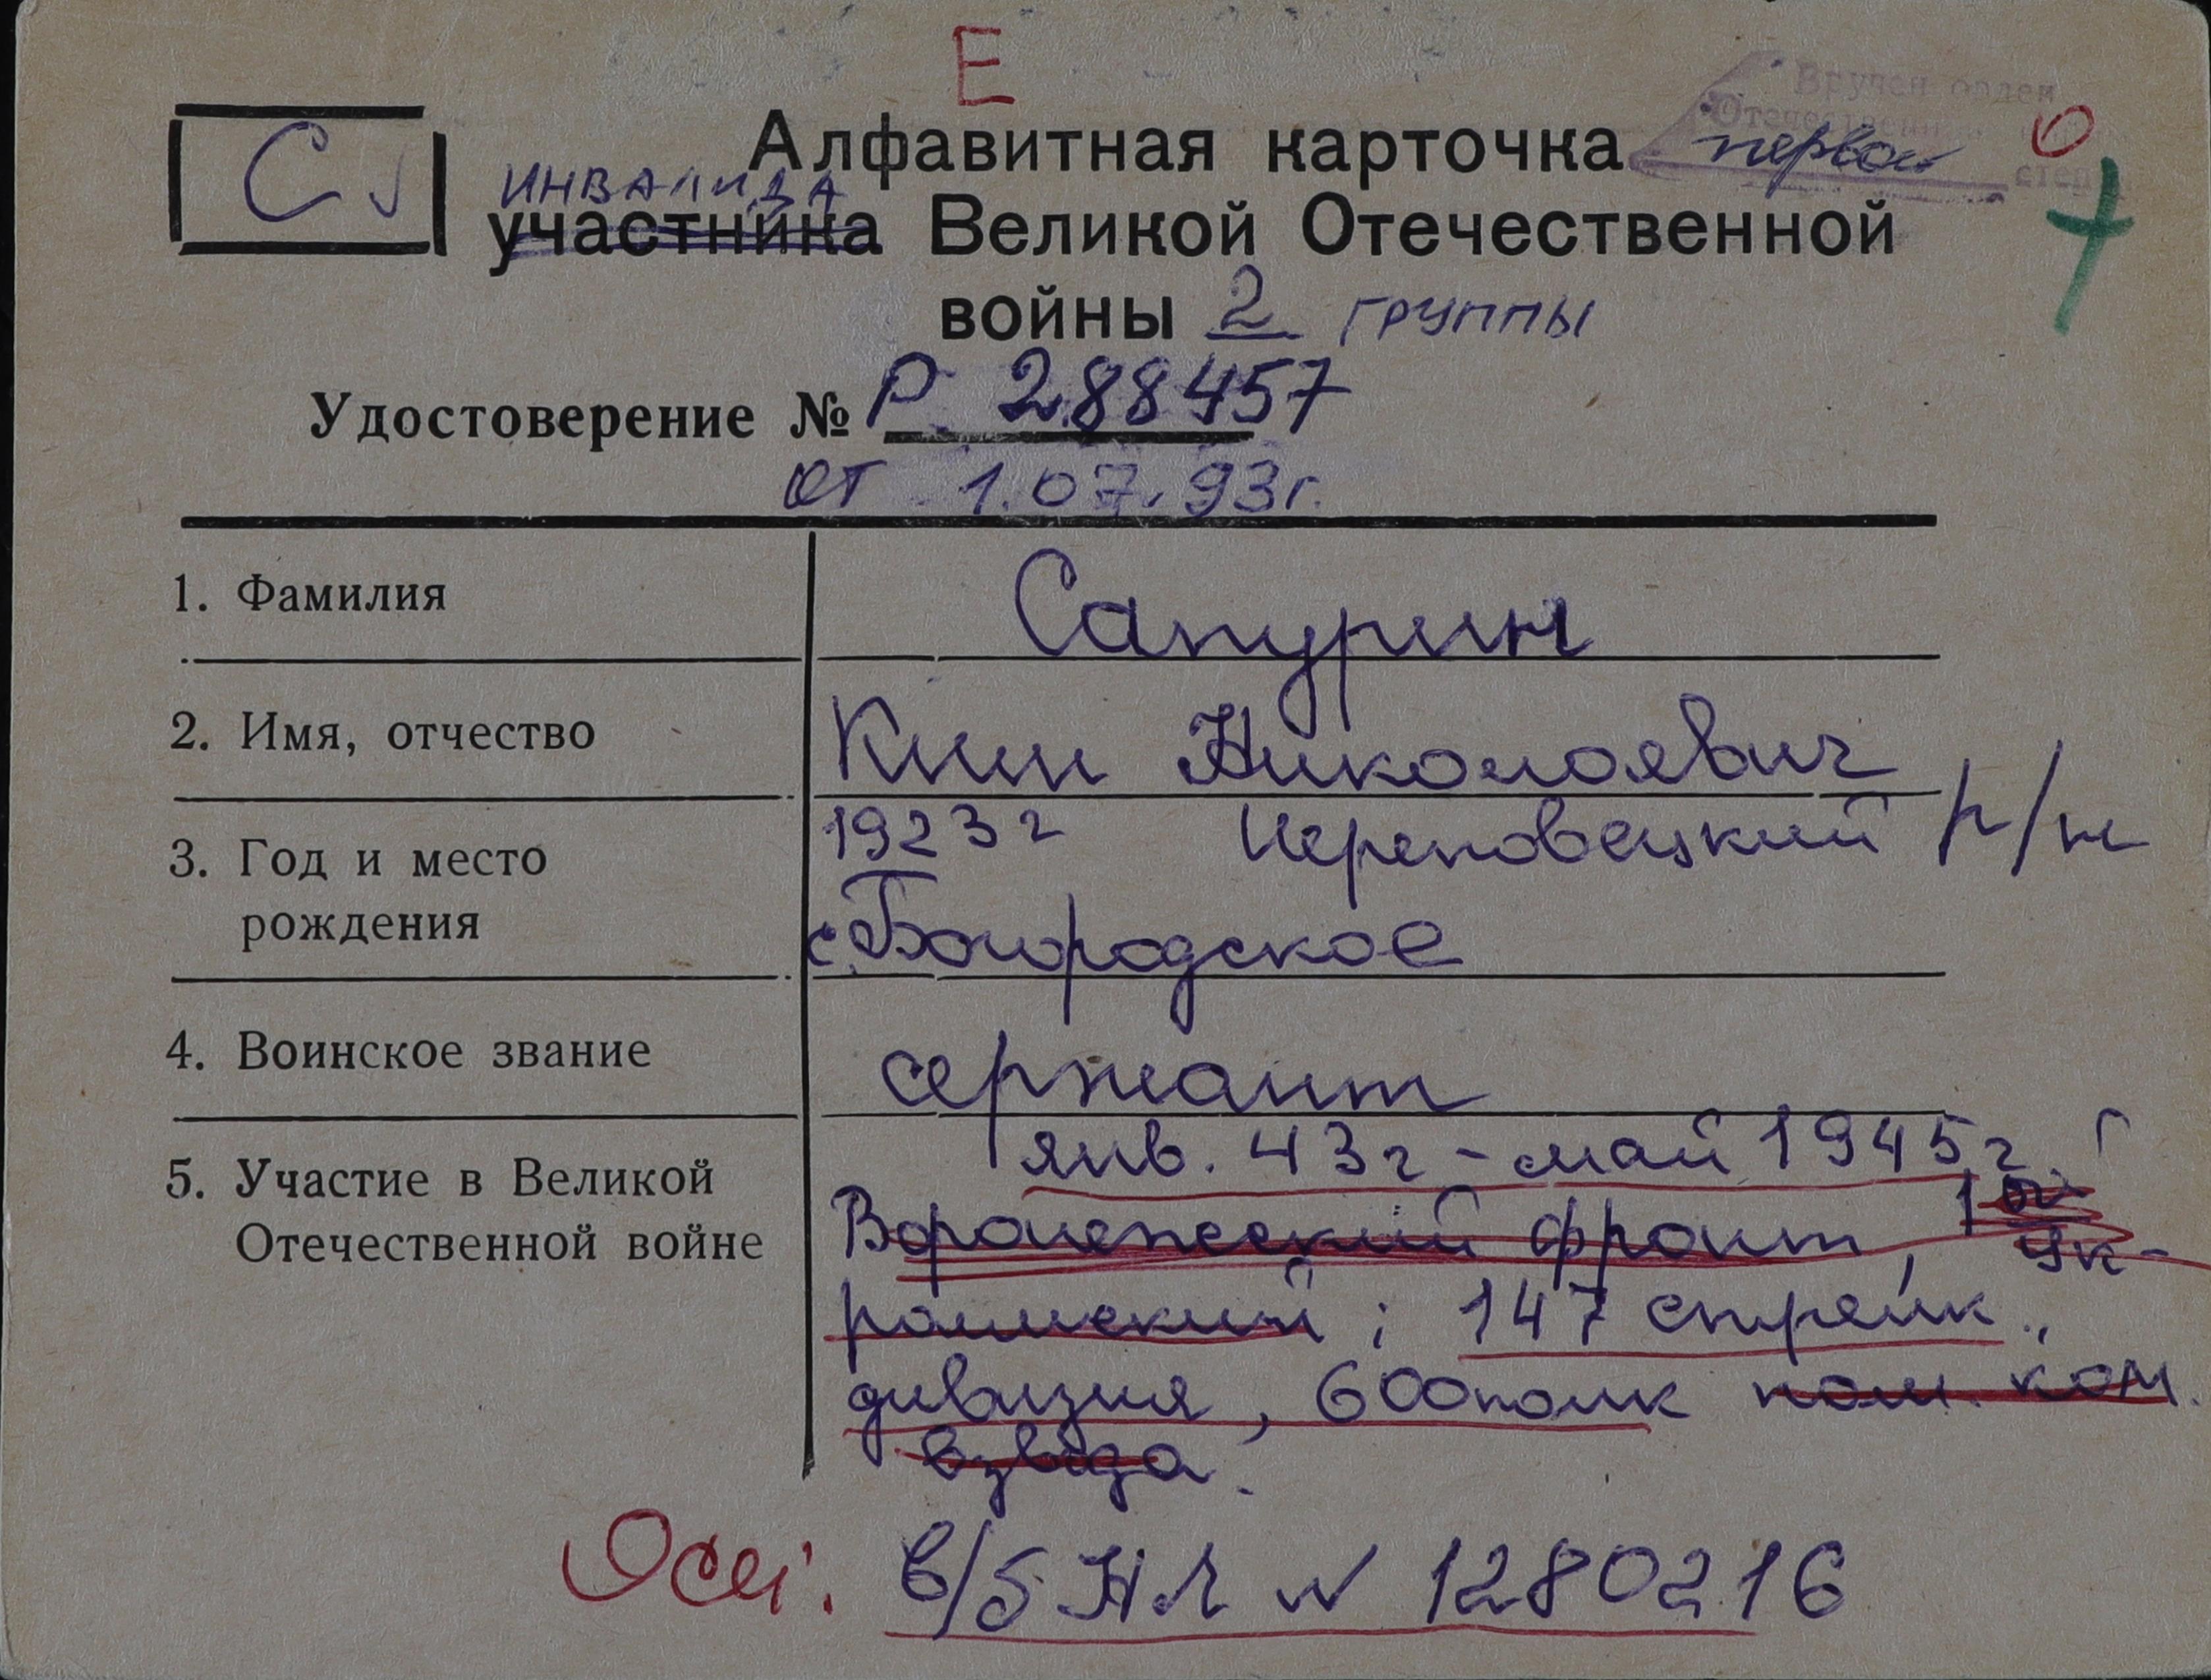 Е
Вручен орден
Отечественн
первой степ
О
С
Алфавитная карточка
инвалида
участника Великой Отечественной
войны 2 группы
Удостоверение № Р 288457
от 1.07.93г.
1. Фамилия Сапурин
2. Имя, отчество Ким Николаевич
3. Год и место 1923г Череповецкий р/н
рождения с. Богородское
4. Воинское звание сержант
5. Участие в Великой янв. 43г - май 1945г.
Отечественной войне Воронежский фронт, 1ый Ук-
раинский; 147 стрелк.,
дивизия, 600полк пом. ком.
взвода.
Осн: в/б НЛ N 1280216